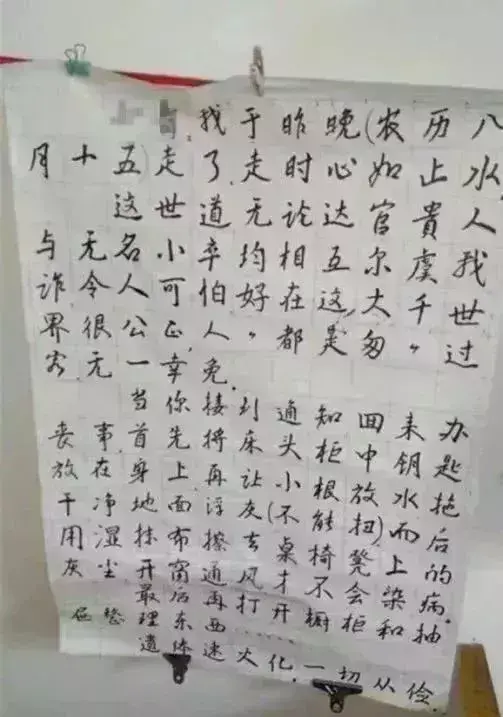 我于昨晚(农历八
月十五)走了,走时心如止水,
这世道无论达官贵人
与无名小卒均相互尔虞我
诈令人可怕好在这大千世
界很公正,“人都是匆匆”过
客,无一幸免.
当你接到通知回来办
丧事首先将床头柜中钥匙
放在身上再让小根放水拖
干净地面浮灰(不能扭)而后
用湿抹布擦去桌椅凳上的
灰尘开窗通风才不会染病.
最后再打开橱柜和抽
屉整理东西……
遗体速火化,一切从俭.